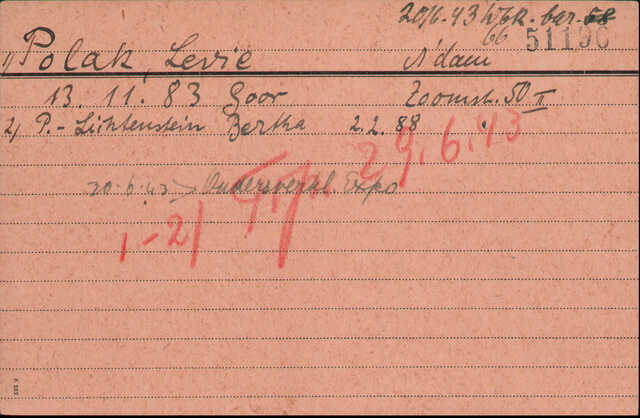 20/6.43 WBK. bar. 58
66 51196
1/ Polak, Levie A'dam
13. 11. 83 Goor Zoomstr. 50 II
2/ P.- Lichtenstein Bertha 2.2.88
20.6.43 Expo
1-2/ Trp. 29.6.43